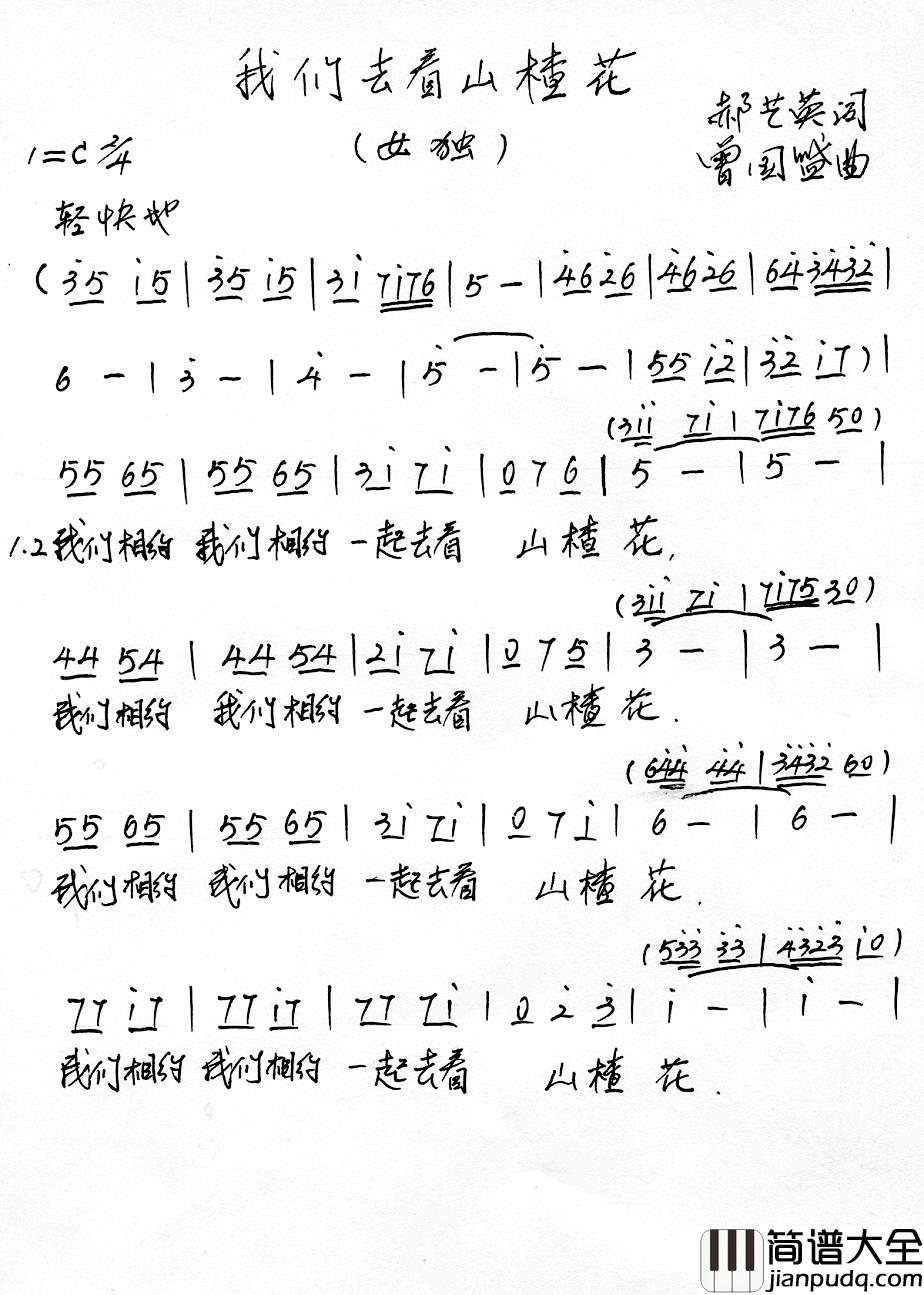 我们去看山楂花
(女独)
郝艺英词
曾国盛曲
1=C 2/4
轻快地
(3̇5 i5 | 3̇5 i5 | 3̇i 7i76 | 5 - | 4̇62̇6 | 4̇62̇6 | 64̇3̇4̇3̇2̇ |
6 - | 3̇ - | 4̇ - | 5̇ - | 5̇ - | 55 i2̇ | 3̇2̇ i7) |
(3ii 7i | 7i76 50)
55 65 | 55 65 | 3i 7i | 0 7 6 | 5 - | 5 - |
1.2我们相约 我们相约 一起去看 山楂花,
(3ii 7i | 7i75 30)
44 54 | 44 54 | 2i 7i | 0 7 5 | 3 - | 3 - |
我们相约 我们相约 一起去看 山楂花.
(64̇4̇ 4̇4̇ | 3̇4̇3̇2̇ 60)
55 65 | 55 65 | 3i 7i | 0 7 i | 6 - | 6 - |
我们相约 我们相约 一起去看 山楂花.
(53̇3̇ 3̇3̇ | 4̇3̇2̇3̇ i0)
77 i7 | 77 i7 | 77 7i | 0 2̇ 3̇ | i - | i - |
我们相约 我们相约 一起去看 山楂花.
简谱大全
jianpudq.com